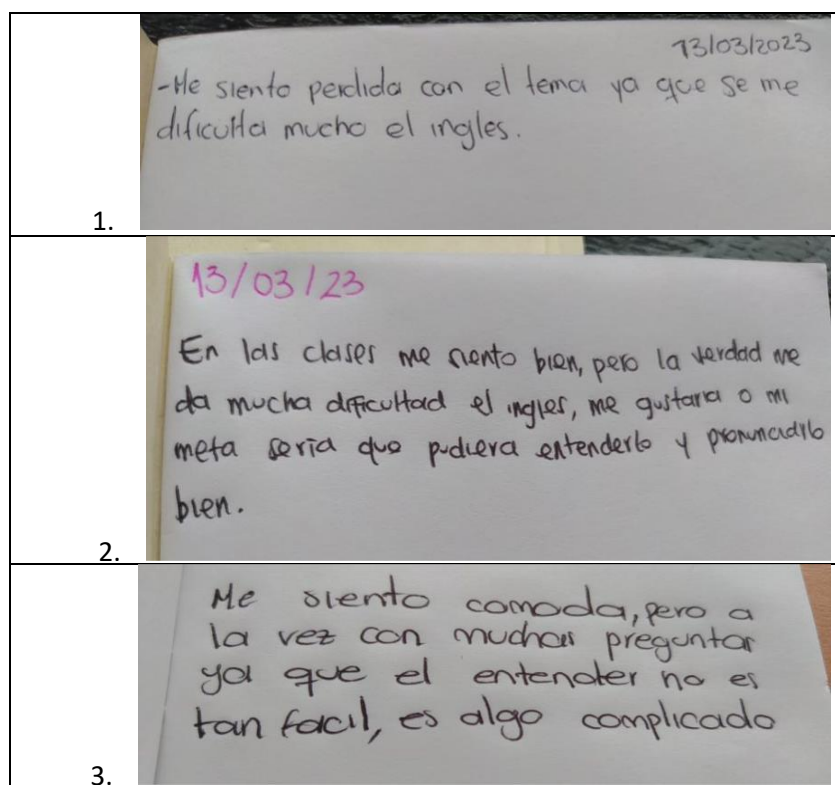 13/03/2023
-Me siento perdida con el tema ya que se me
dificulta mucho el ingles.
1.
13/03/23
En las clases me siento bien, pero la verdad me
da mucha dificultad el ingles, me gustaria o mi
meta seria que pudiera entenderlo y pronunciarlo
bien.
2.
Me siento comoda, pero a
la vez con muchas preguntas
ya que el entender no es
tan facil, es algo complicado
3.